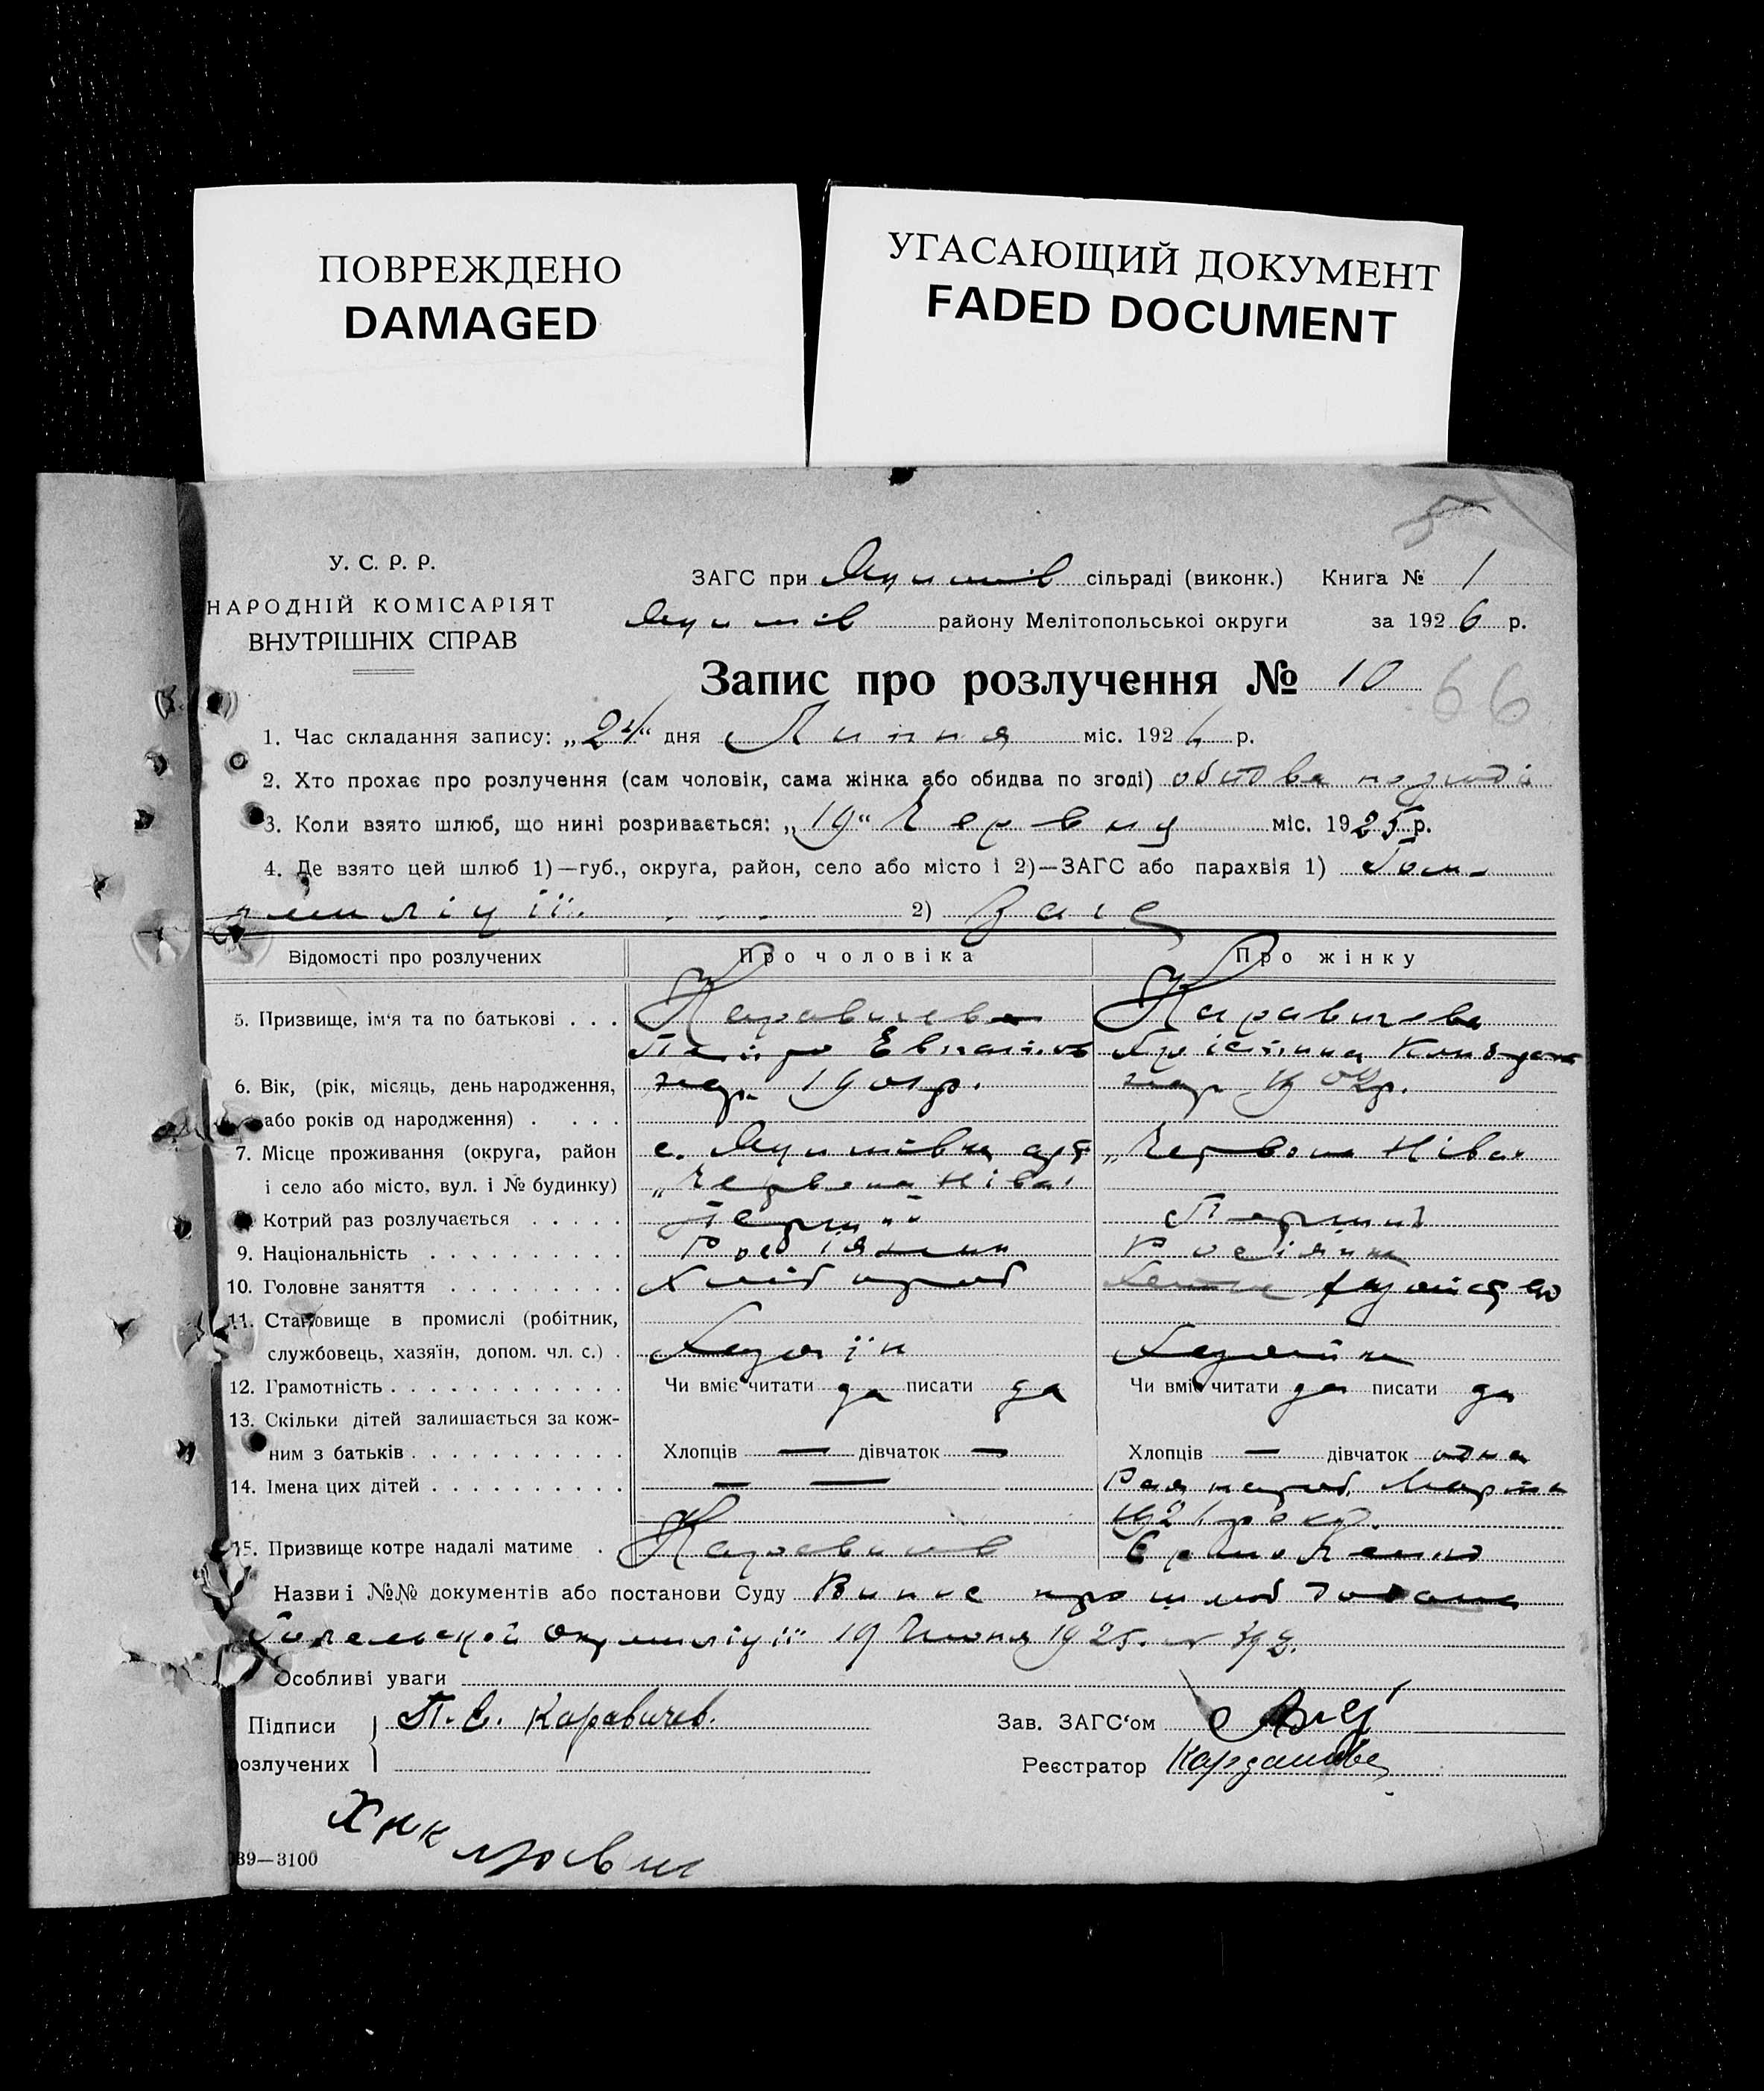 ПОВРЕЖДЕНО
DAMAGED
УГАСАЮЩИЙ ДОКУМЕНТ
FADED DOCUMENT
У. С. Р. Р.
НАРОДНІЙ КОМІСАРІЯТ
ВНУТРІШНІХ СПРАВ
ЗАГС при сільраді (виконк.) Книга № 1
району Мелітопольської округи за 1926 р.
Запис про розлучення № 10
66
1. Час складання запису: „24“ дня Липня міс. 1926 р.
2. Хто прохає про розлучення (сам чоловік, сама жінка або обидва по згоді) обидва по згоді
3. Коли взято шлюб, що нині розривається: „19“ Червня міс. 1925 р.
4. Де взято цей шлюб 1)—губ., округа, район, село або місто і 2)—ЗАГС або парахвія 1) Гом-
2) Загс
Відомості про розлучених Про чоловіка Про жінку
5. Призвище, ім'я та по батькові . . . Каравичева
Петро
6. Вік, (рік, місяць, день народження, нар. 1901 р. нар 1902р.
або років од народження) . . . .
7. Місце проживання (округа, район с. „Червона Ніва“
і село або місто, вул. і № будинку) „Червона Ніва“
Котрий раз розлучається . . . . . Перший Перший
9. Національність . . . . . . . . . . Росіянин Росіянка
10. Головне заняття . . . . . . . . . Хлібороб
11. Становище в промислі (робітник,
службовець, хазяїн, допом. чл. с.) . Хазяїн Хазяйка
12. Грамотність . . . . . . . . . . . . Чи вміє читати да писати да Чи вміє читати да писати да
13. Скільки дітей залишається за кож-
ним з батьків . . . . . . . . . . . Хлопців — дівчаток — Хлопців — дівчаток одна
14. Імена цих дітей . . . . . . . . . . — — Рая
року.
15. Призвище котре надалі матиме . Каравичев Єрмоленко
Назви і №№ документів або постанови Суду Випис про шлюб
Гомельской 19 Июня 1925.
Особливі уваги
Підписи П. Е. Каравичев. Зав. ЗАГС‘ом
розлучених Реєстратор
39—3100